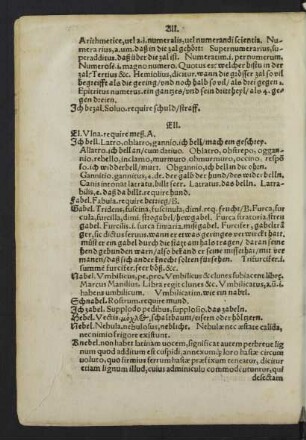 All.
Arithmetice, vel a.i. numeralis, vel numerandi scientia. Nu-
merarius, a. um. daß in die zal gehört: Supernumerarius, su-
peradditus, daß über die zal ist. Numeratim. i. per numerum.
Numerose. i. magno numero. Quotus est: welcher bistu in der
zal: Tertius &c. Hemiolius, dicitur, wann die grösser zal so vil
begreifft als die gering/und noch halb so vil/als drei gegen
Epitritus numerus, ein gantzes/und sein dritheyl/als 4. ge-
gen dreien.
Ich bezal. Soluo. require schuld/straff.
Ell.
El. Vlna. require meß. A.
Ich bell. Latro, oblatro, gannio, ich bell/mach ein geschrey.
Allatro, ich bell an/cum dativo. Oblatro, obstrepo, oggan-
nio, rebello, inclamo, murmuro, obmurmuro, occino,
lo, ich widderbell/murr. Obgannio, ich bell die ohren.
Gannitio, gannitus, 4. de. der galb der hund/des widerbelln.
Canis inconat latratu, billt seer. Latratus, das belln. Latra-
bilis, e. daß da billt. require hund.
Fabel. Fabula. require
Gabel. Tridens, fuscina, fuscinula, dimi. req. frucht/B. Furca, fur-
cula, furcilla, dimi. strogabel/hewgabel. Furca
gabel. Furcilis. i. furca fimaria, mistgabel. Furcifer, gabelträ-
ger, sic dictus servus, wann er etwas geringes verwirckt hatt,
mußt er ein gabel durch die statt am halß tragen/daran seine
hend gebunden warn/also befand er seine missethat, und ver-
manet/daß sich ander knecht sölten fürsehen. Trifurcifer. i.
summe furcifer, seer böß. &c.
Nabel. Vmbilicus, pe. pro. Vmbilicus & clunes subiacent
Marcus Manilius, Libra regit clunes &c. Vmbilicatus, a, ũ. i.
habens umbilicum. Vmbilicatim, wie ein nabel.
Schnabel. Rostrum. require mund.
Ich zabel. Supplodo pedibus, supplosio, das zabeln.
Hebel. Vectis, schaltbaum/eisern oder höltzern.
Nebel. Nebula, nebulosus, neblicht. Nebulæ nec æstate calida,
nec nimio frigore existunt.
Knebel. non habet latinam vocem, significat autem perbreve lig-
num quod additum est cuspidi, annexum/ꝑ loro basiæ circum
voluto, quo firmius ferrum basiæ præfixum teneatur, dicitur
etiam lignum illud, cuius adminiculo commode utuntur, qui
desectam